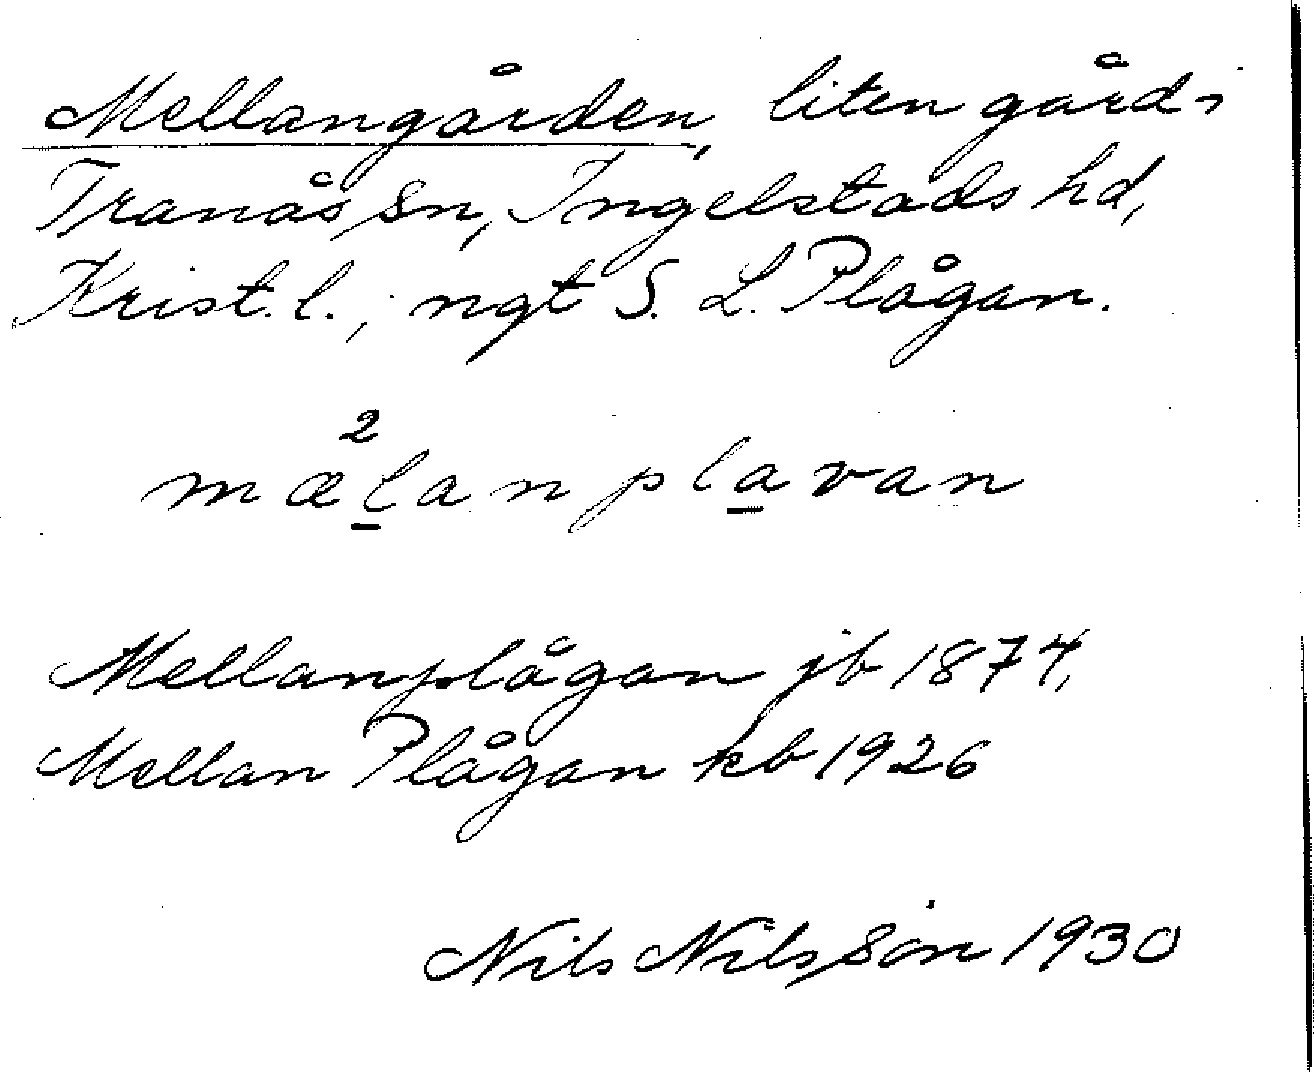 Mellangården, liten gård i
Tranås sn, Ingelstads hd,
Krist. l., ngt S. L. Plågan.
2
mælanplavan
Mellanplågan jb 1874,
Mellan Plågan kb 1926
Nils Nilsson 1930